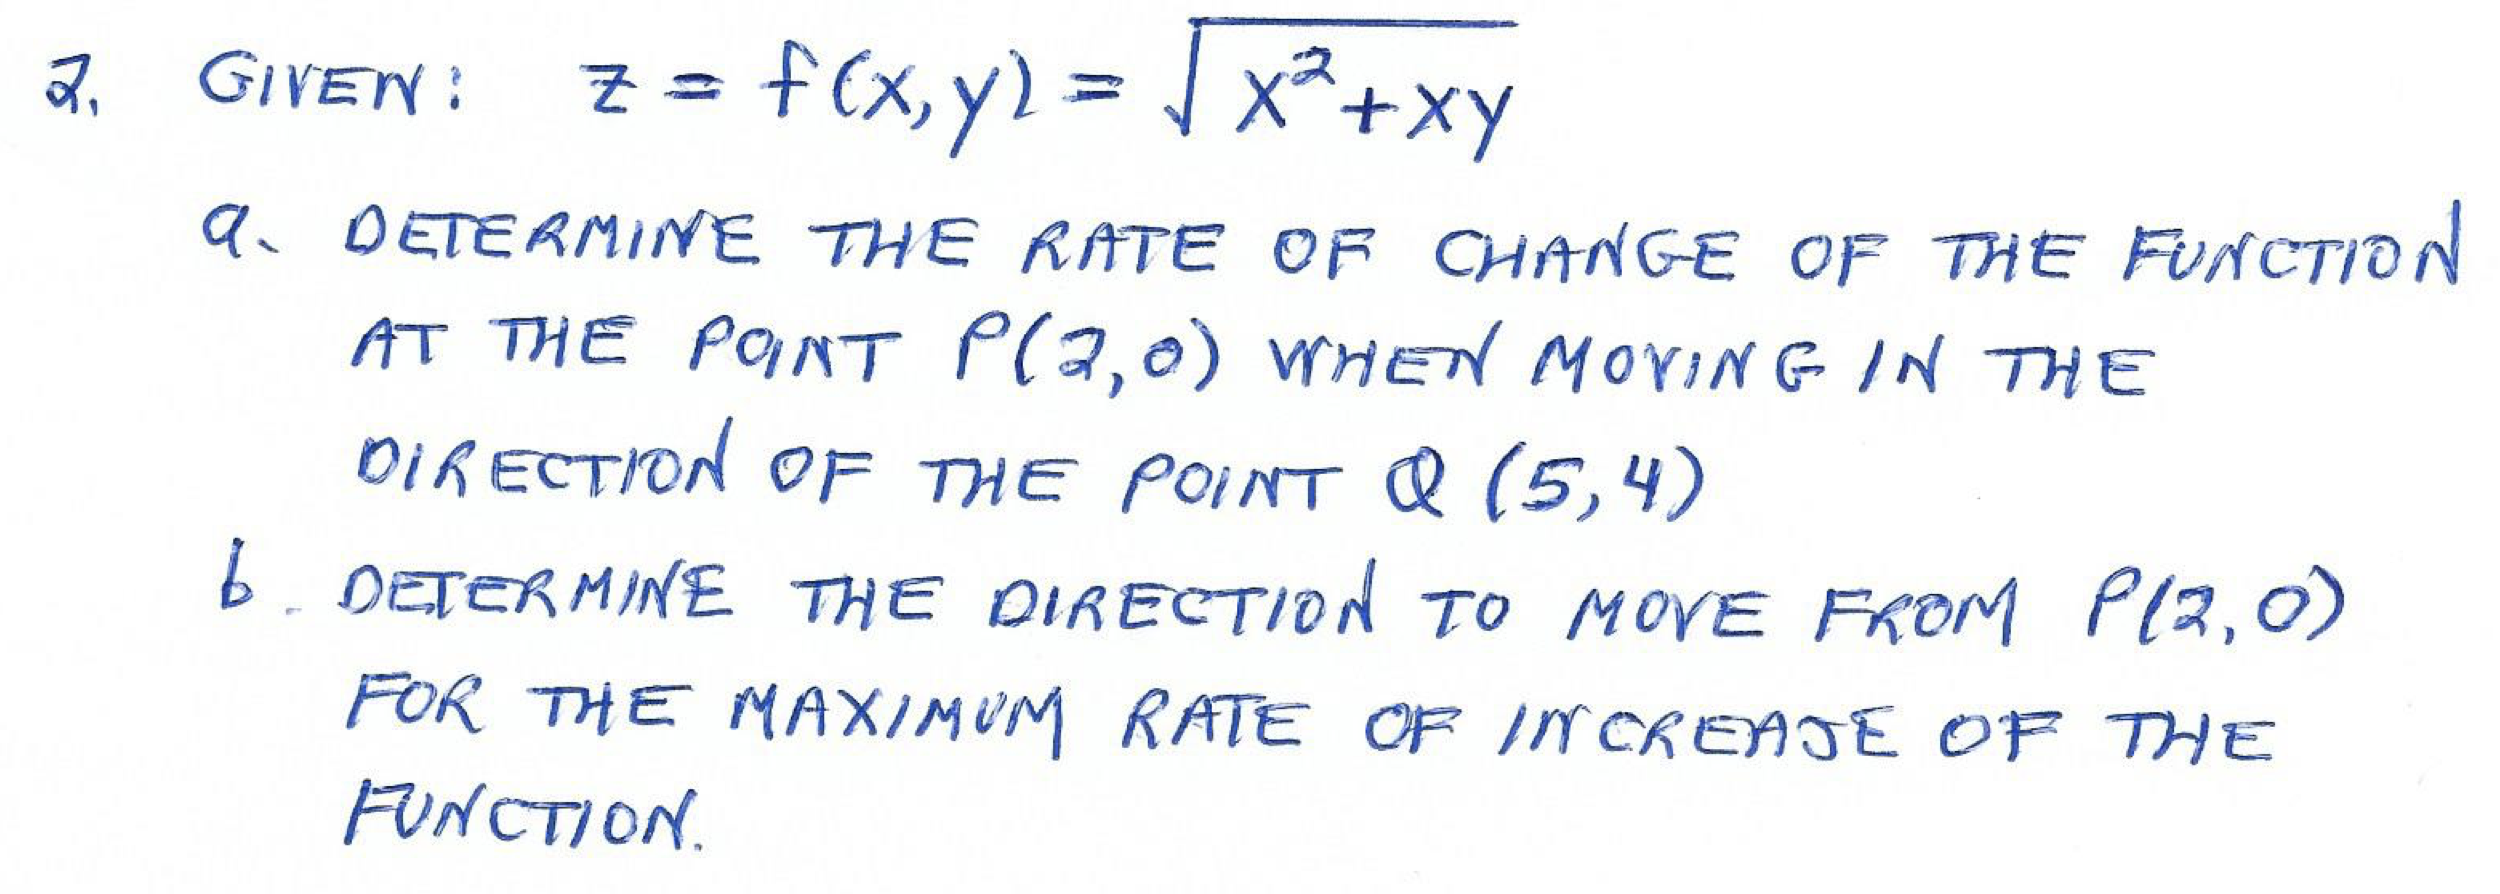 2. GIVEN: z = f(x,y) = √x²+xy
a. DETERMINE THE RATE OF CHANGE OF THE FUNCTION
AT THE POINT P(2,0) WHEN MOVING IN THE
DIRECTION OF THE POINT Q (5,4)
b. DETERMINE THE DIRECTION TO MOVE FROM P(2,0)
FOR THE MAXIMUM RATE OF INCREASE OF THE
FUNCTION.